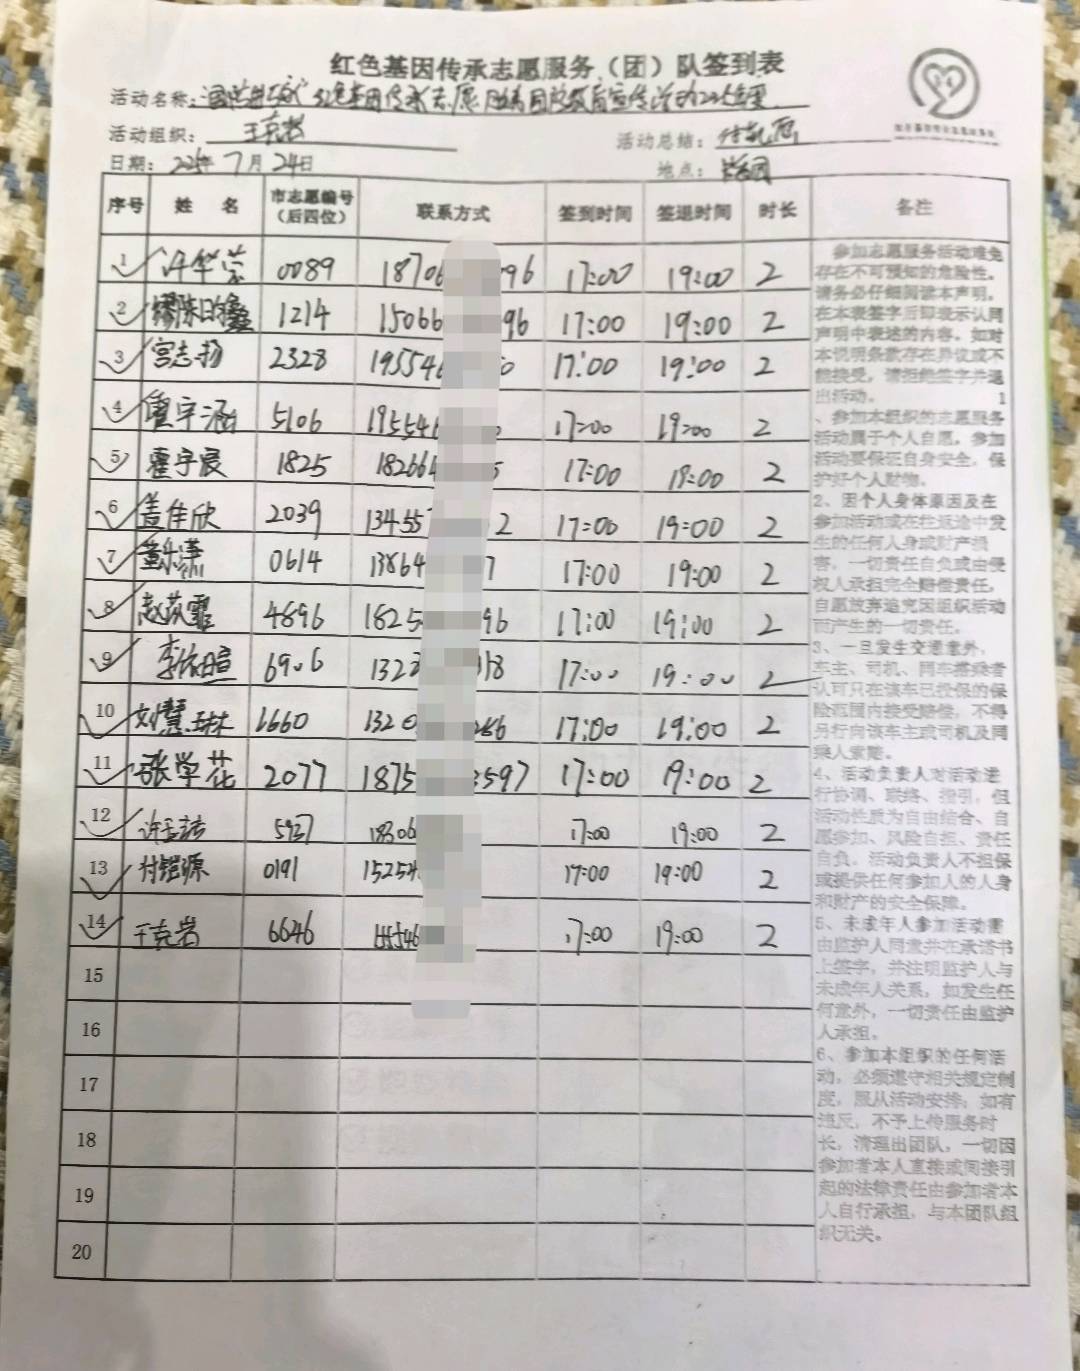 红色基因传承志愿服务（团）队签到表
活动名称：
活动组织：王克岩 活动总结：
日期： 年7月24日 地点：
序号 姓 名 市志愿编号（后四位） 联系方式 签到时间 签退时间 时长 备注
1 许华荣 0089 18706 96 17:00 19:00 2
2 1214 15066 96 17:00 19:00 2
3 宫志扬 2328 195546 0 17:00 19:00 2
4 霍宇涵 5106 195546 17:00 19:00 2
5 霍宇宸 1825 182664 5 17:00 19:00 2
6 盖佳欣 2039 134557 2 17:00 19:00 2
7 0614 13864 7 17:00 19:00 2
8 4896 1825 96 17:00 19:00 2
9 李依暄 6906 1322 318 17:00 19:00 2
10 刘慧琳 1660 1320 286 17:00 19:00 2
11 张学花 2077 1875 3597 17:00 19:00 2
12 5937 18306 17:00 19:00 2
13 付铠源 0191 15254 17:00 19:00 2
14 王克岩 6646 17:00 19:00 2
15
16
17
18
19
20
参加志愿服务活动难免
存在不可预知的危险性。
请务必仔细阅读本声明。
在本表签字后即表示认同
声明中表述的内容。如对
本说明条款存在异议或不
能接受，请拒绝签字并退
出活动。 1
、参加本组织的志愿服务
活动属于个人自愿，参加
活动要保证自身安全，保
护好个人财物。
2、因个人身体原因及在
参加活动或在往返途中发
生的任何人身或财产损
害，一切责任自负或由侵
权人承担完全赔偿责任，
自愿放弃追究因组织活动
而产生的一切责任。
3、一旦发生交通意外，
车主、司机、同车搭乘者
认可只在该车已投保的保
险范围内接受赔偿，不得
另行向该车主或司机及同
乘人索赔。
4、活动负责人对活动进
行协调、联络、指引，但
活动性质为自由结合、自
愿参加、风险自担、责任
自负。活动负责人不担保
或提供任何参加人的人身
和财产的安全保障。
5、未成年人参加活动需
由监护人同意并在承诺书
上签字，并注明监护人与
未成年人关系，如发生任
何意外，一切责任由监护
人承担。
6、参加本组织的任何活
动，必须遵守相关规定制
度，服从活动安排；如有
违反，不予上传服务时
长，清理出团队，一切因
参加者本人直接或间接引
起的法律责任由参加者本
人自行承担，与本团队组
织无关。